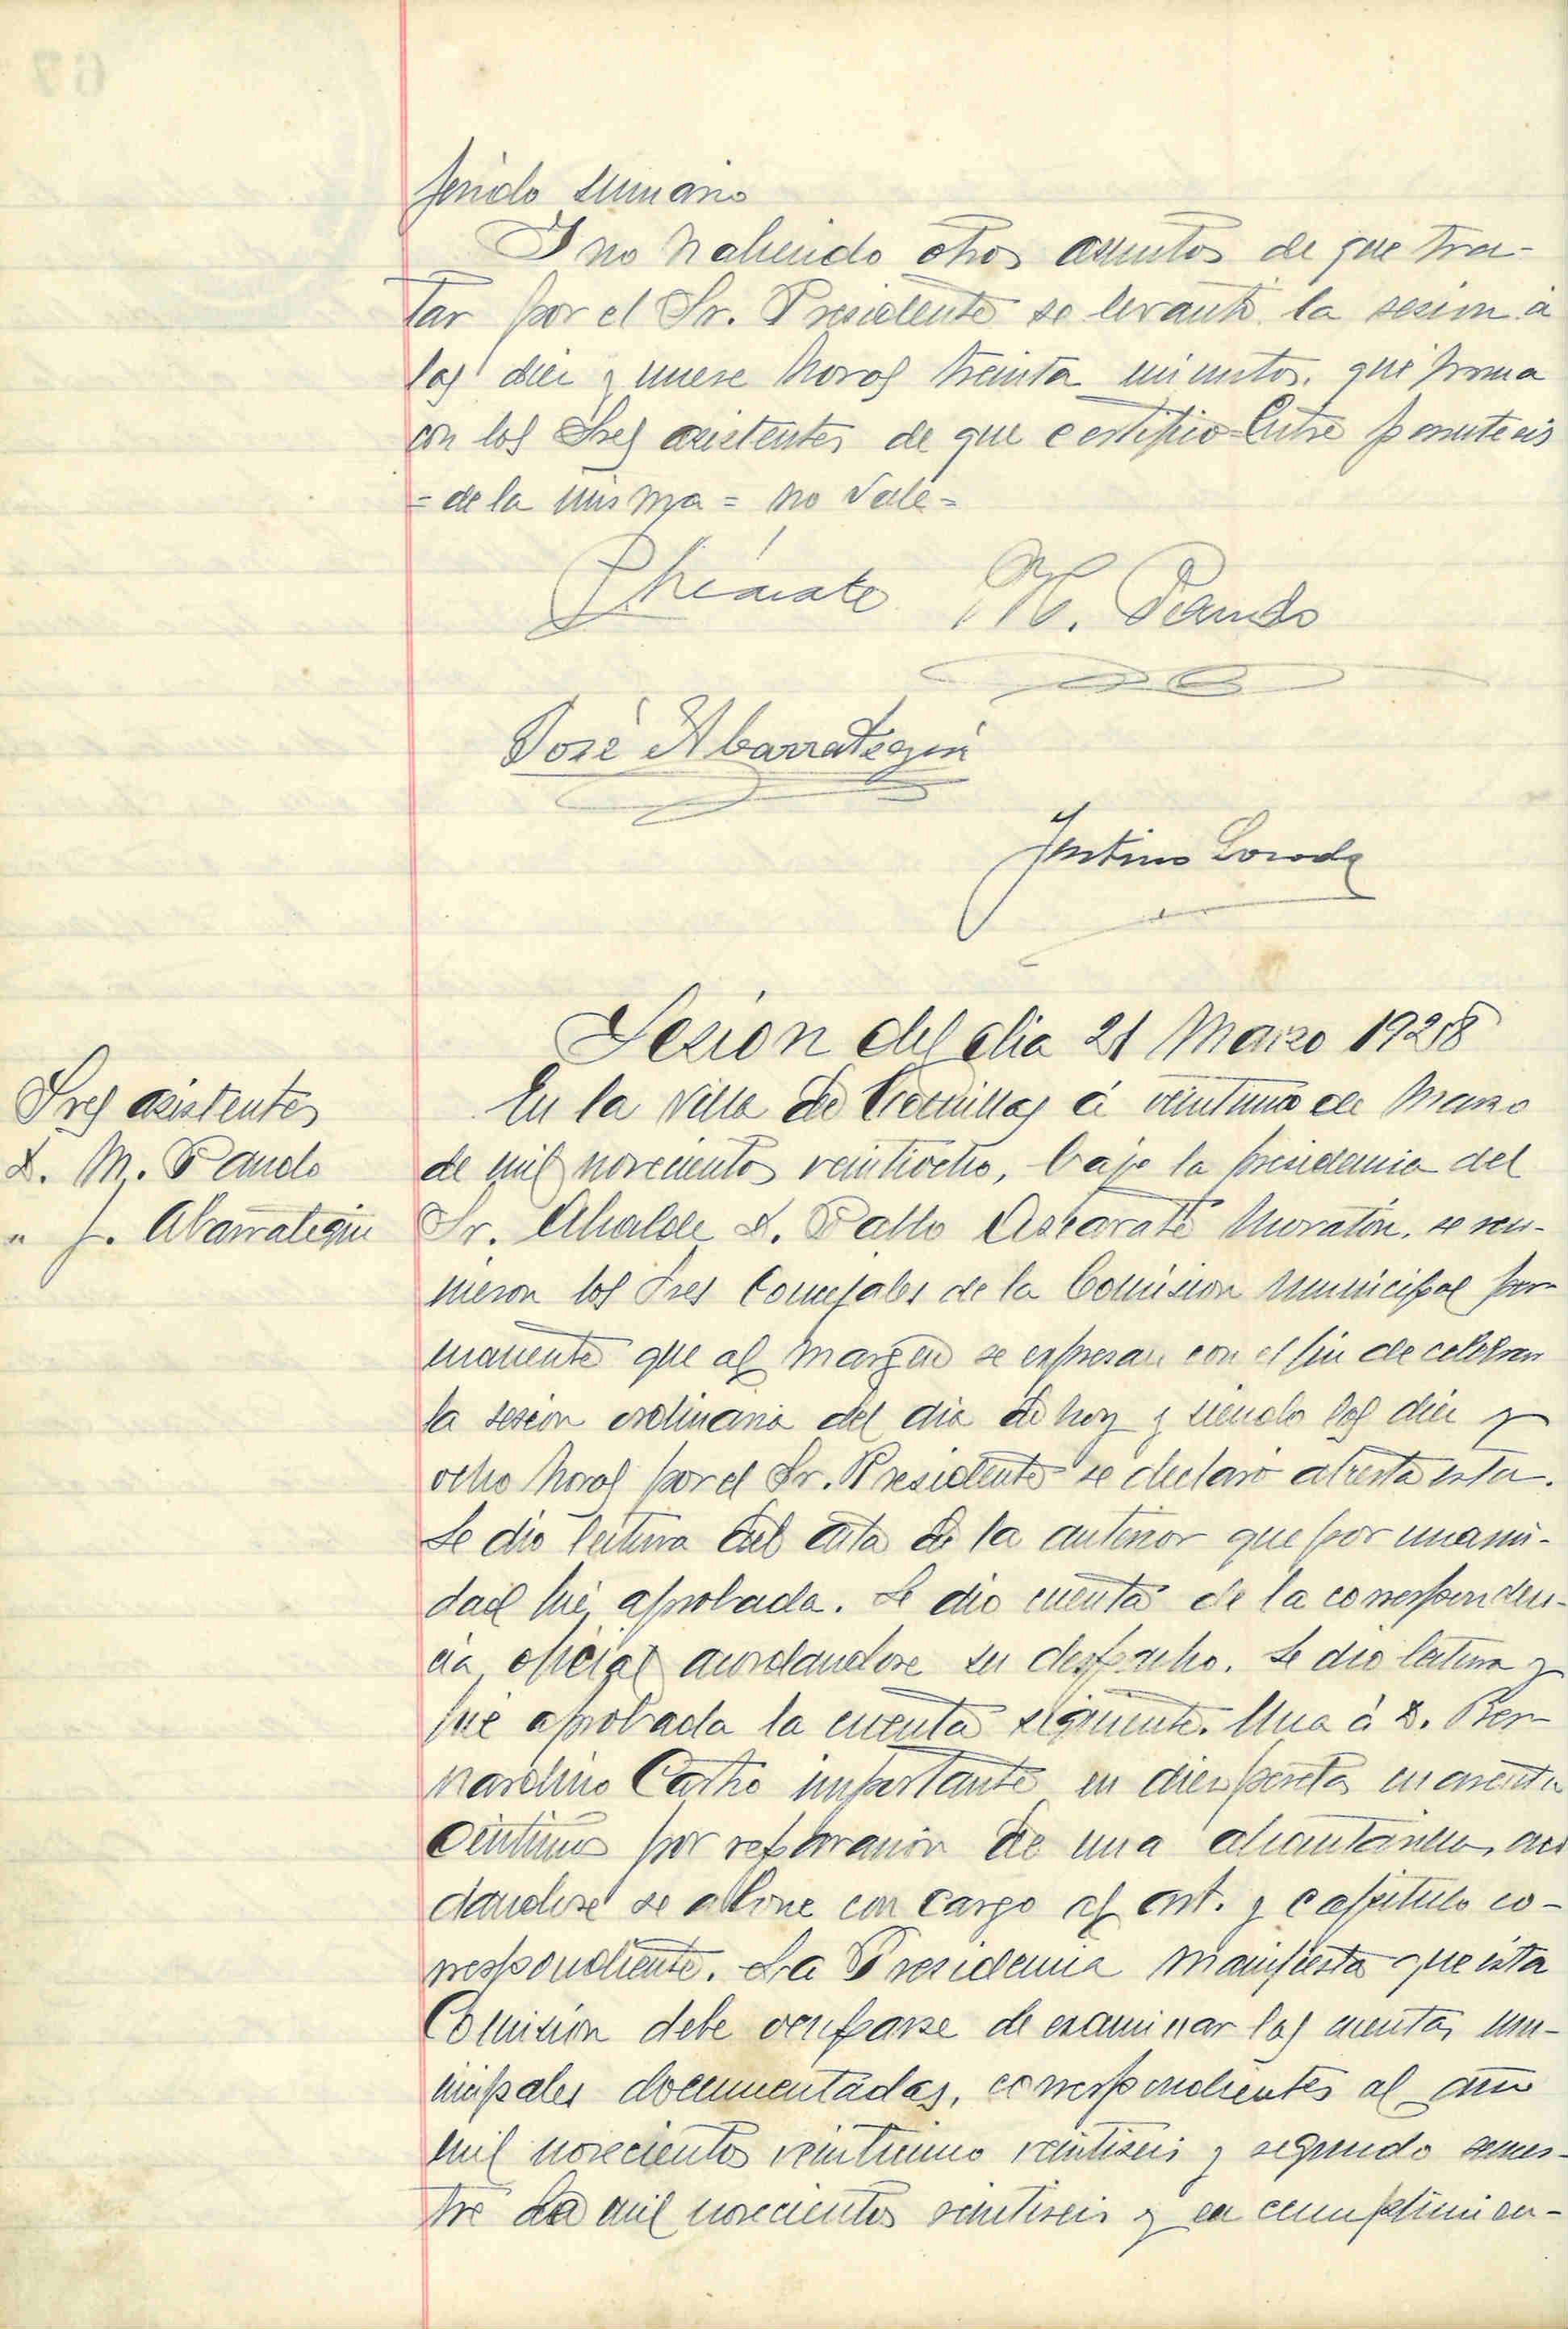 ferido sumario
Y no habiendo otros asuntos de que tra-
tar por el Sr. Presidente se levantó la sesion á
las diez y nueve horas treinta minutos, que firma
con los Sres asistentes de que certifico=Entre parentesis
= de la misma = no vale=
M. Pando
José Abarrategui
Justino
Sesion del dia 21 Marzo 1928
Sres asistentes
D. M. Pando
" J. Abarrategui
En la villa de Comillas á veintiuno de Marzo
de mil novecientos veintiocho, bajo la presidencia del
Sr. Alcalde D. Pablo Ascarate Moratón, se reu-
nieron los Sres Concejales de la Comision Municipal per-
manente que al margen se expresan con el fin de celebrar
la sesion ordinaria del dia de hoy y siendo las diez y
ocho horas por el Sr. Presidente se declaró abierta esta.
Se dio lectura del acta de la anterior que por unani-
dad fué aprobada. Se dio cuenta de la corresponden-
cia oficial acordandose su despacho. Se dio lectura y
fué aprobada la cuenta siguiente. Una á D. Ber-
nardino Castro importante en diez pesetas cuarenta
centimos por reparacion de una alcantarilla, acor
dandose se abone con cargo al art. y capitulo co-
rrespondiente. La Presidencia manifiesta que esta
Comisión debe ocuparse de examinar las cuentas mu-
nicipales documentadas, correspondientes al año
mil novecientos veinticinco veintiseis y segundo semes-
tre de mil novecientos veintiseis y en cumplimien-